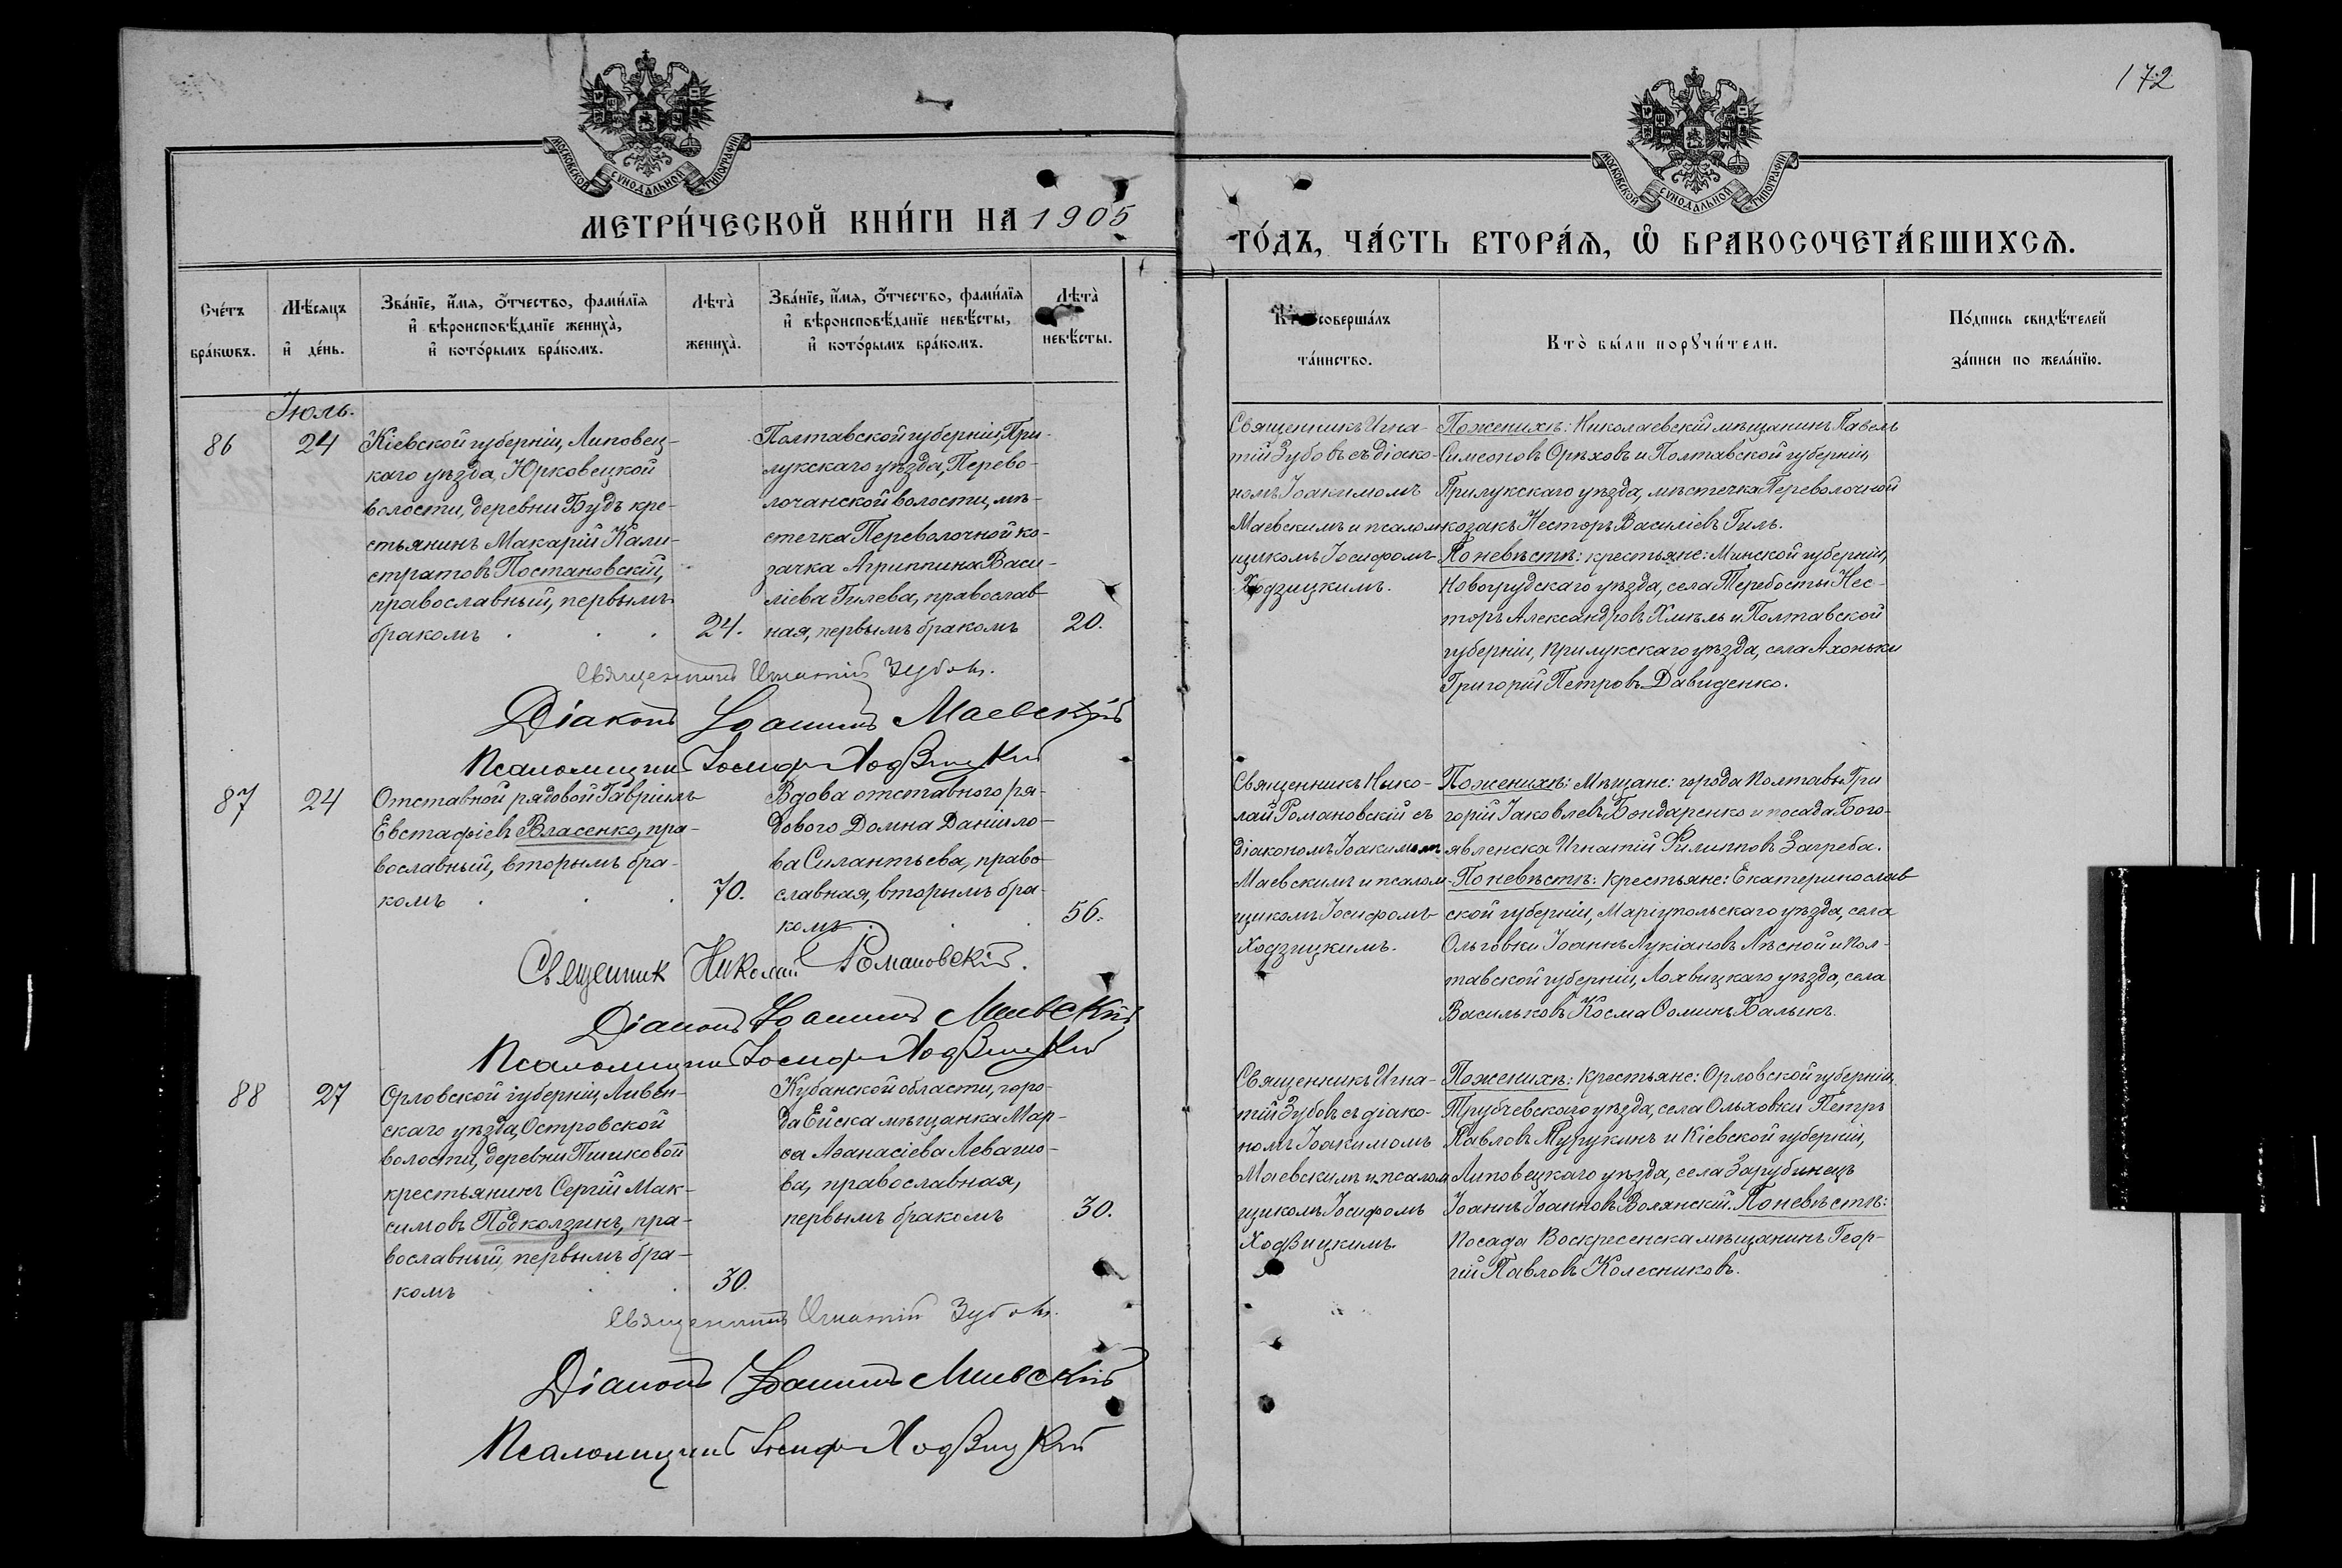 172
МОСКОВСКОЙ СѴНОДАЛЬНОЙ ТИПОГРАФІИ
МОСКОВСКОЙ СѴНОДАЛЬНОЙ ТИПОГРАФІИ
МЕТРИ́ЧЕСКОЙ КНИ́ГИ НА 1905
ГО́ДЪ, ЧА́СТЬ ВТОРА́Ѧ, Ѡ БРАКОСОЧЕТА́ВШИХСѦ.
Сче́тъ бра́кѡвъ.
Мѣ́сяцъ и де́нь.
Зва́нїе, и́мя, о́тчество, фами́лїя
и вѣроисповѣ́данїе жениха̀,
и кото́рымъ бра́комъ.
Лѣта̀ жениха̀.
Зва́нїе, и́мя, о́тчество, фами́лїя
и вѣроисповѣ́данїе невѣ́сты,
и кото́рымъ бра́комъ.
Лѣта̀ невѣ́сты.
Кто̀ соверша́лъ
та́инство.
Кто̀ бы́ли порꙋчи́тели.
По́дпись свидѣ́телей
за́писи по жела́нїю.
Іюль.
86
24
Кіевской губерніи, Липовец-
каго уѣзда, Юрковецкой
волости, деревни Будъ кре-
стьянинъ Макарій Кали-
стратовъ Постановскій,
православный, первымъ
бракомъ . . .
24.
Полтавской губерніи, При-
лукскаго уѣзда, Перево-
лочанской волости, мѣ-
стечка Переволочной ко-
зачка Агриппина Васи-
ліева Гилева, православ-
ная, первымъ бракомъ
20.
Священникъ Игна-
тій Зубовъ съ діако-
номъ Іоакимомъ
Маевскимъ и псалом-
щикомъ Іосифомъ
Ходзицкимъ.
По женихѣ: Николаевскій мѣщанинъ Павелъ
Симеоновъ Орѣховъ и Полтавской губерніи,
Прилукскаго уѣзда, мѣстечка Переволочной
козакъ Несторъ Василіевъ Гиль.
По невѣстѣ: крестьяне: Минской губерніи,
Новогрудскаго уѣзда, села Теребосты Нес-
торъ Александровъ Хмѣль и Полтавской
губерніи, Прилукскаго уѣзда, села Ахоньки
Григорій Петровъ Давиденко.
Священникъ Игнатій Зубовъ.
Діаконъ Іоакимъ Маевскій
Псаломщикъ Іосифъ Ходзицкій
87
24
Отставной рядовой Гавріилъ
Евстафіевъ Власенко, пра-
вославный, вторымъ бра-
комъ . . .
70.
Вдова отставного ря-
дового Домна Даніило-
ва Силантьева, право-
славная, вторымъ бра-
комъ . .
56.
Священникъ Нико-
лай Романовскій съ
діакономъ Іоакимомъ
Маевскимъ и псалом-
щикомъ Іосифомъ
Ходзицкимъ.
По женихѣ: Мѣщане: города Полтавы Гри
горій Іаковлевъ Бондаренко и посада Бого-
явленска Игнатій Филипповъ Загреба.
По невѣстѣ: Крестьяне: Екатеринослав-
ской губерніи, Маріупольскаго уѣзда, села
Ольговки Іоаннъ Лукіановъ Лѣсной и Пол-
тавской губерніи, Лохвицкаго уѣзда, села
Васильковъ Косма Ѳоминъ Балыкъ.
Священникъ Николай Романовскій.
Діаконъ Іоакимъ Маевскій
Псаломщикъ Іосифъ Ходзицкій
88
27
Орловской губерніи, Ливен-
скаго уѣзда, Островской
волости, деревни Пишковой
крестьянинъ Сергій Мак-
симовъ Подколзинъ, пра-
вославный, первымъ бра-
комъ . .
30.
Кубанской области, горо-
да Ейска мѣщанка Мар-
ѳа Аѳанасіева Левашо-
ва, православная,
первымъ бракомъ
30.
Священникъ Игна-
тій Зубовъ съ діако-
номъ Іоакимомъ
Маевскимъ и псалом
щикомъ Іосифомъ
Ходзицкимъ.
По женихѣ: Крестьяне: Орловской губерніи,
Трубчевскаго уѣзда, села Ольховки Петръ
Павловъ Мурукинъ и Кіевской губерніи,
Липовецкаго уѣзда, села Зарубинецъ
Іоаннъ Іоанновъ Волянскій. По невѣстѣ:
Посада Воскресенска мѣщанинъ Геор-
гій Павловъ Колесниковъ.
Священникъ Игнатій Зубовъ.
Діаконъ Іоакимъ Маевскій
Псаломщикъ Іосифъ Ходзицкій